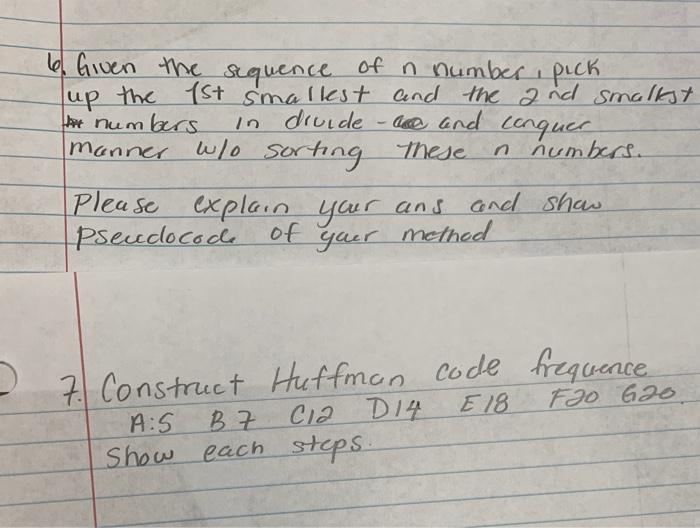 6. Given the sequence of n number, pick
up the 1st smallest and the 2nd smallest
numbers in divide - and conquer
manner w/o sorting these n numbers.
Please explain your ans and show
pseudocode of your method
7. Construct Huffman code frequence
A:5 B7 C12 D14 E18 F20 G20
Show each steps.